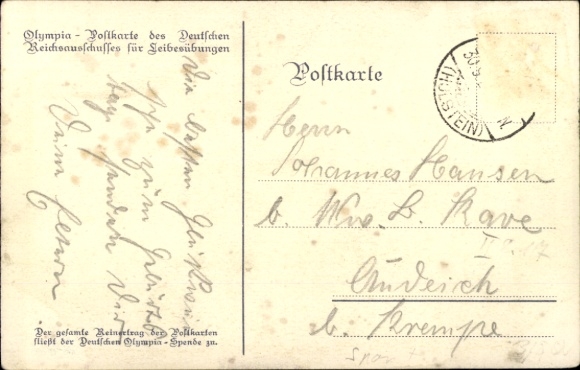 Olympia - Postkarte des Deutschen
Reichsausschusses für Leibesübungen
Die besten Glückwü
sche zum Geburts
tag senden Dir
Deine Eltern
Der gesamte Reinertrag der Postkarten
fließt der Deutschen Olympia-Spende zu.
Postkarte
(HOLSTEIN)
Herrn
Johannes Hansen
b. Ww. L. Rave
Audeich
b. Krempe